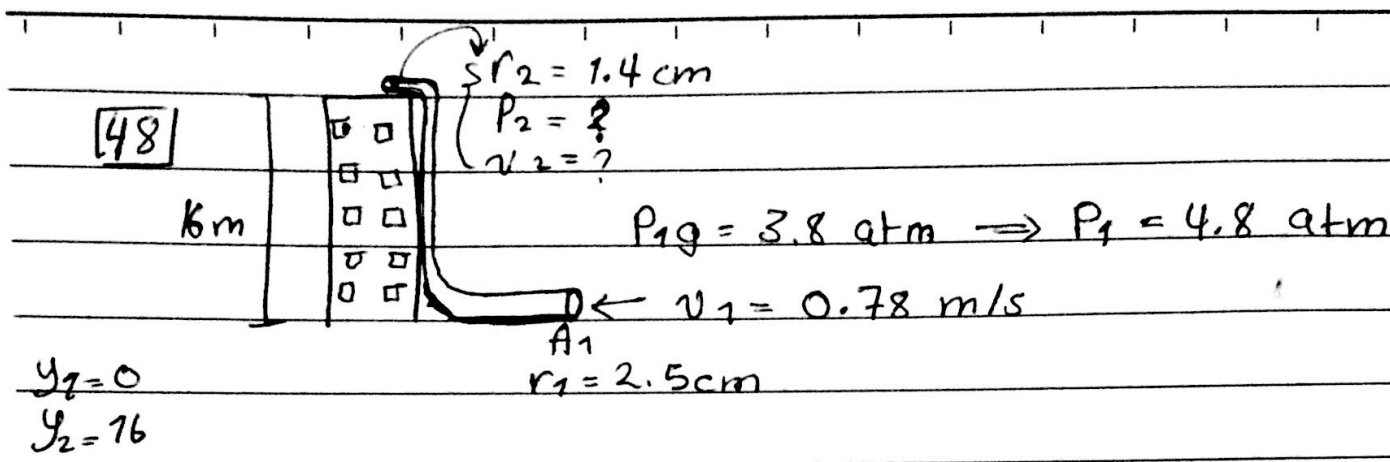 r₂ = 1.4 cm
48
P₂ = ?
v₂ = ?
16m
P₁g = 3.8 atm ⇒ P₁ = 4.8 atm
← v₁ = 0.78 m/s
A₁
y₁=0
r₁ = 2.5cm
y₂=16